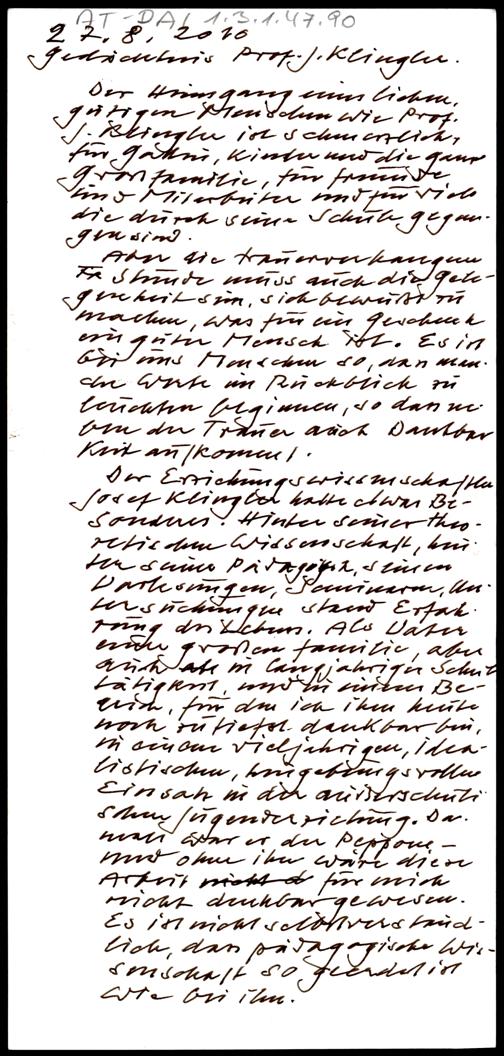 AT-DAI 1.3.1.47.90
27.8.2010
Gedächtnis Prof. J. Klingler.
Der Heimgang eines lieben,
gütigen Menschen wie Prof.
J. Klingler ist schmerzlich,
für Gattin, Kinder und die ganze
Großfamilie, für Freunde
und Mitarbeiter und für viele
die durch seine Schule gegan-
gen sind.
Aber die trauerverhangene
Stunde muss auch die Gele-
genheit sein, sich bewußt zu
machen, was für ein Geschenk
ein guter Mensch ist. Es ist
bei uns Menschen so, dass man-
che Werte im Rückblick zu
leuchten beginnen, so dass ne-
ben der Trauer auch Dankbar
keit aufkommt.
Der Erziehungswissenschaftler
Josef Klingler hatte etwas Be-
sonderes. Hinter seiner theo-
retischen Wissenschaft, hin-
ter seiner Pädagogik, seinen
Vorlesungen, Seminaren, Un-
tersuchungen stand Erfah-
rung des Lebens. Als Vater
einer großen Familie, aber
auch als in langjähriger Schul
tätigkeit, und in einem Be-
reich, für den ich ihm heute
noch zutiefst dankbar bin,
in einem vieljährigen, idea-
listischen, hingebungsvollen
Einsatz in der außerschuli
schen Jugenderziehung. Da-
mals war er der Peppone –
und ohne ihn wäre diese
Arbeit nicht für mich
nicht denkbar gewesen.
Es ist nicht selbstverständ-
lich, dass pädagogische Wis-
senschaft so geerdet ist
wie bei ihm.